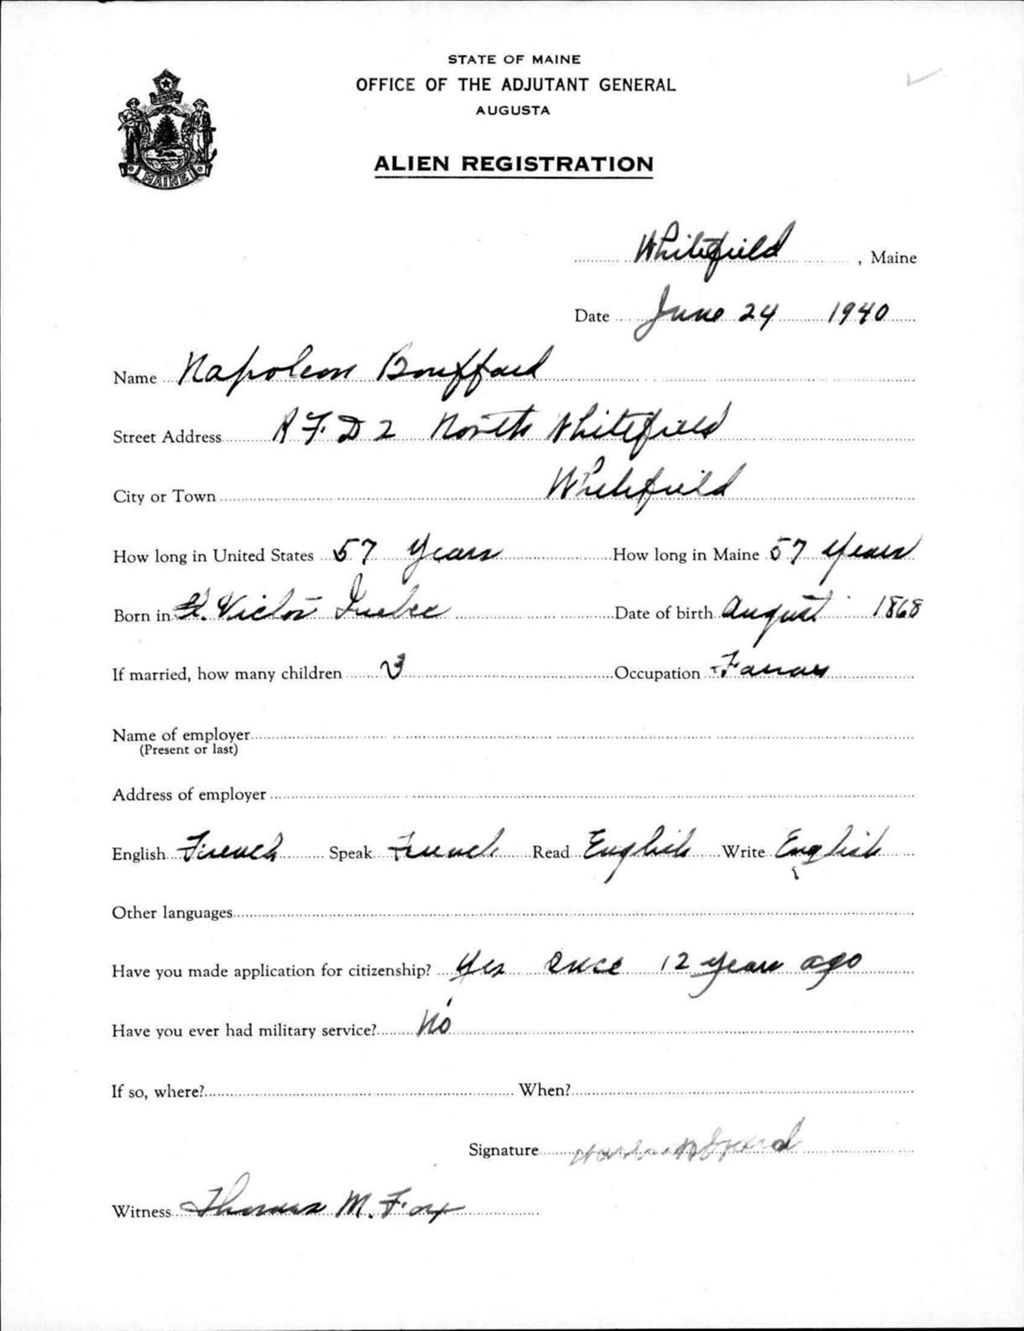 STATE OF MAINE
OFFICE OF THE ADJUTANT GENERAL
AUGUSTA
ALIEN REGISTRATION
MAINE
Whitefield, Maine
Date June 24 1940
Name Napoleon Bouffard
Street Address R F. D 2 North Whitefield
City or Town Whitefield
How long in United States 57 Years How long in Maine 57 Years
Born in St. Victor Quebec Date of birth August 1868
If married, how many children 3 Occupation Farmer
Name of employer
(Present or last)
Address of employer
English French Speak French Read English Write English
Other languages
Have you made application for citizenship? Yes Once 12 years ago
Have you ever had military service? No
If so, where? When?
Signature
Witness Thomas M. Fox